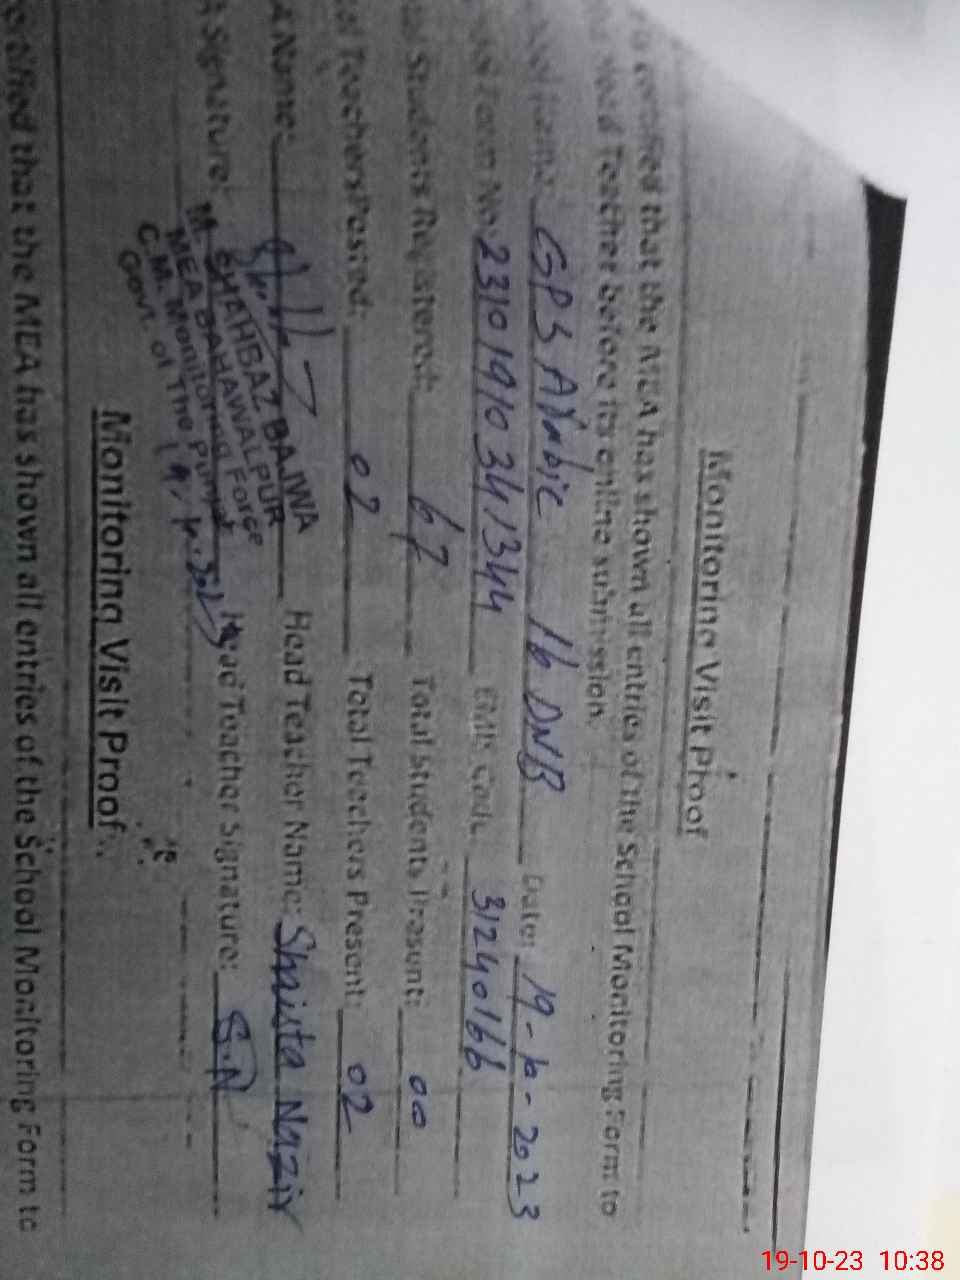 Monitoring Visit Proof
certified that the MEA has shown all entries of the School Monitoring Form to
Head Teacher before its online submission.
GPS Arabic 16 DNB Date: 19-10-2023
Form No: 23101910341344 EMIS Code 31240166
Students Registered: 67 Total Students Present: 00
Teachers Posted: 02 Total Teachers Present: 02
A Name: Head Teacher Name: Shaista Nazir
A Signature: Head Teacher Signature: S.N
SHAHBAZ BAJWA
MEA BAHAWALPUR
C.M. Monitoring Force
Govt. of The Punjab
Monitoring Visit Proof
certified that the MEA has shown all entries of the School Monitoring Form to
19-10-23 10:38